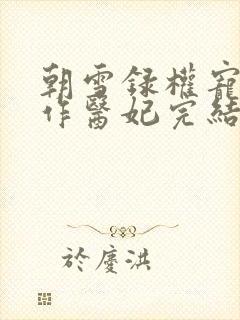 朝雪録權寵
作醫妃完結
於慶洪